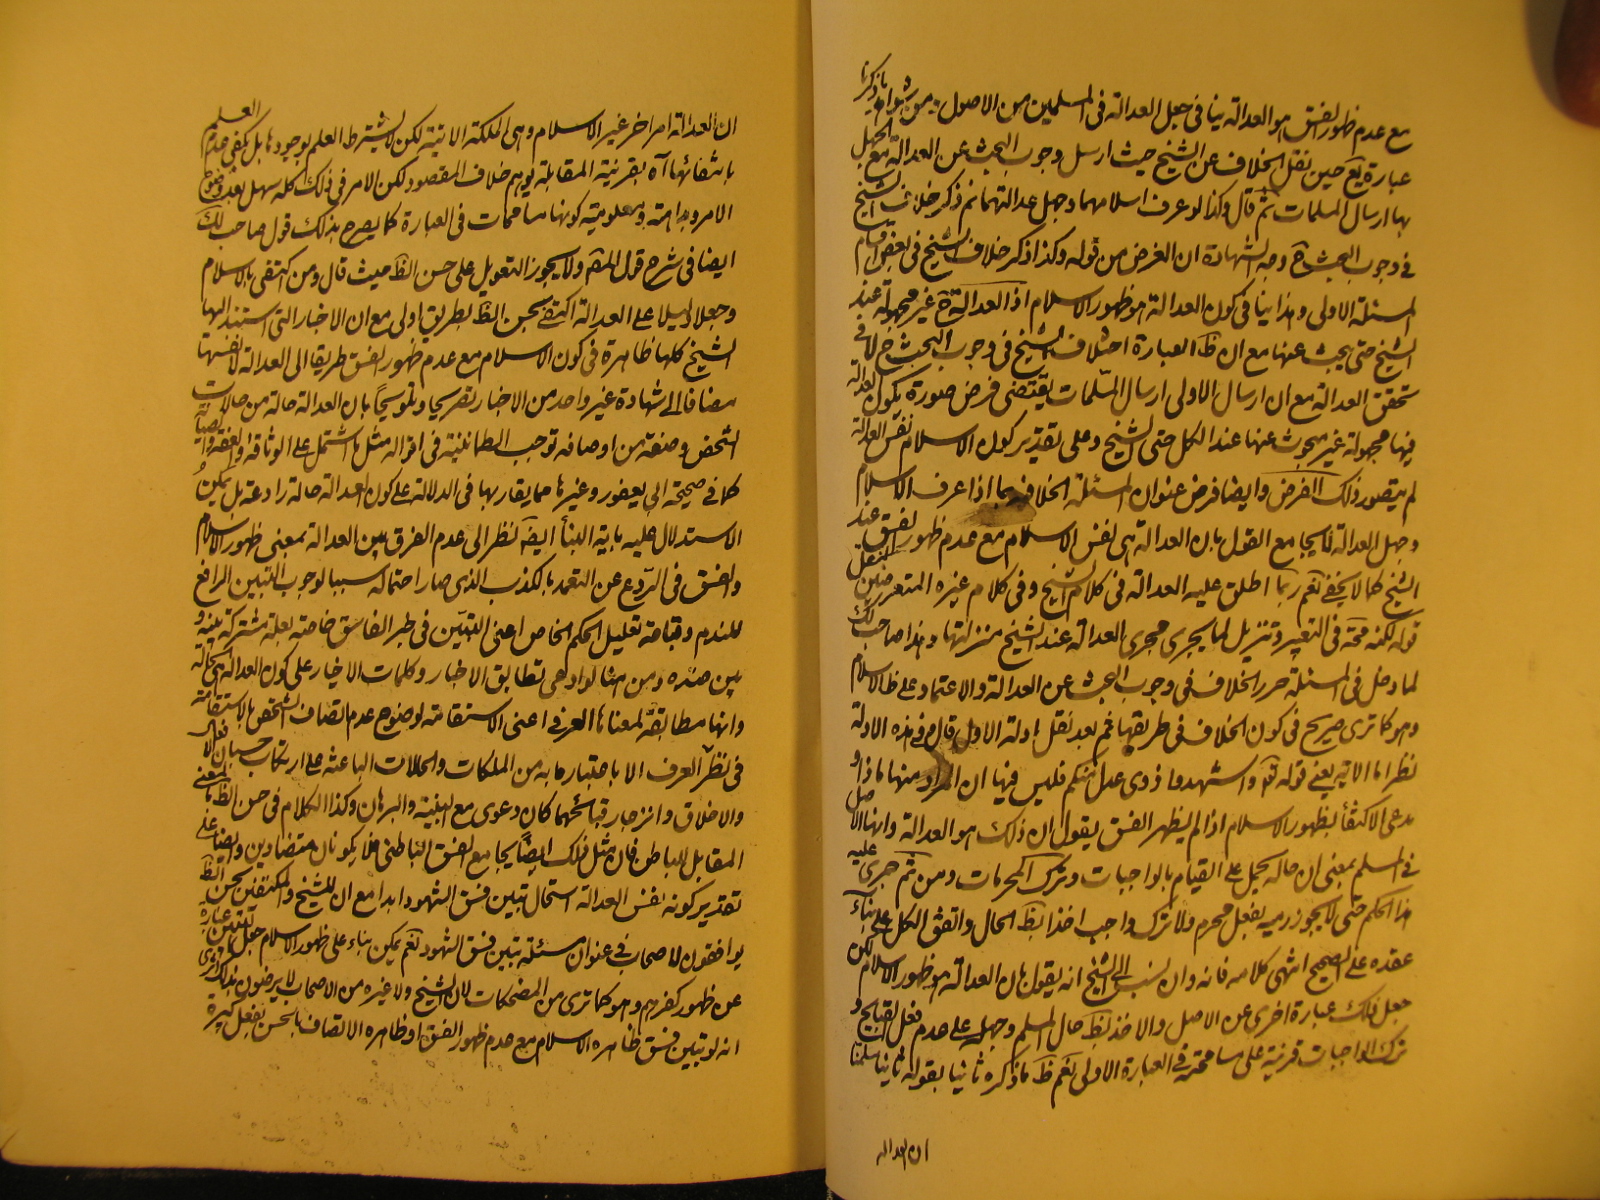 مع عدم ظهور الفسق هو العدالة ينافى جعل العدالة فى المسلمين من الاصول ومن شواهد ما ذكرنا
عبارة يع حين نقل الخلاف عن الشيخ حيث ارسل وجوب البحث عن العدالة مع الجهل
بها ارسال المسلمات ثم قال وكذا لو عرف اسلامهما وجهل عدالتهما ثم ذكر خلاف الشيخ
فى وجوب البحث ح وجه الشهادة ان الغرض من قوله وكذا ذكر خلاف الشيخ فى بعض اقسام
المسئلة الاولى وهذا ينافى كون العدالة هو ظهور الاسلام اذ العدالة ح غير مجهولة عند
الشيخ حتى يبحث عنها مع ان ظ العبارة اختلاف الشيخ فى وجوب البحث ح لا فى
تحقق العدالة مع ان ارسال الاولى ارسال المسلمات يقتضى فرض صورة يكون العدالة
فيها مجهولة غير مبحوث عنها عند الكل حتى الشيخ وعلى تقدير كون الاسلام نفس العدالة
لم يتصور ذلك الفرض وايضا فرض عنوان المسئلة الخلافية بما اذا عرف الاسلام
وجهل العدالة لا يجامع القول بان العدالة هى نفس الاسلام مع عدم ظهور الفسق عند
الشيخ كما لا يخفى نعم ربما اطلق عليه العدالة فى كلام الشيخ وفى كلام غيره المتعرضين لنقل
قوله لكنه فى التعبير وتنزيل لما يجرى مجرى العدالة عند الشيخ منزلتها وهذا صاحب لك
لما دخل فى المسئلة حرر الخلاف فى وجوب البحث عن العدالة والاعتماد على ظ الاسلام
وهو كما ترى صريح فى كون الخلاف فى طريقها ثم بعد نقل ادلة الاول قال وفى هذه الادلة
نظر اما الاية يعنى قوله تعه واستشهدوا ذوى عدل منكم فليس فيها ان المراد منها ماذا و
يدعى الاكتفاء بظهور الاسلام اذا لم يظهر الفسق يقول ان ذلك هو العدالة وانها الاصل
فى المسلم بمعنى ان حاله يحمل على القيام بالواجبات وترك المحرمات ومن ثم جرى عليه
هذا الحكم حتى لا يجوز رميه بفعل محرم ولا ترك واجب اخذا بظ الحال واتفق الكل على بناء
عقده على الصحيح انتهى كلامه فانه وان نسب الى الشيخ انه يقول بان العدالة هو ظهور الاسلام لكن
جعل ذلك عبارة اخرى عن الاصل والاخذ بظ حال المسلم وحمله على عدم فعل القبايح و
ترك الواجبات قرينة على مسامحته فى العبارة الاولى نعم ظ ما ذكره ثانيا بقوله ثانيا سلمنا
ان العدالة
ان العدالة امر اخر غير الاسلام وهى الملكة الاتية لكن لا يشترط العلم بوجودها بل يكفى عدم العلم
بانتفائها آه بقرينة المقابلة يوهم خلاف المقصود لكن الامر فى ذلك كله سهل بعد وضوح
الامر وبداهته ومعلومية كونها مسامحات فى العبارة كما يصرح بذلك قول صاحب لك
ايضا فى شرح قول المص ولا يجوز التعويل على حسن الظ حيث قال ومن اكتفى بالاسلام
وجعله دليلا على العدالة اكتفى بحسن الظ بطريق اولى مع ان الاخبار التى استند اليها
الشيخ كلها ظاهرة فى كون الاسلام مع عدم ظهور الفسق طريقا الى العدالة لا نفسها
مضافا الى شهادة غير واحد من الاخبار تصريحا وتلويحا بان العدالة حالة من حالات
الشخص وصفة من اوصافه توجب الطمانينة فى اقواله مثل ما اشتمل على الوثاقة والعفة والصيانة
كما فى صحيحة ابى يعفور وغيرها مما يقاربها فى الدلالة على كون العدالة حالة رادعة بل يمكن
الاستدلال عليه باية النبأ ايضا نظرا الى عدم الفرق بين العدالة بمعنى ظهور الاسلام
والفسق فى الردع عن التعمد بالكذب الذى صار احتماله سببا لوجوب التبين الرافع
للندم وقباحة تعليل الحكم الخاص اعنى التبين فى خبر الفاسق خاصة بعلة مشتركة بينه و
بين ضده ومن هنا لو ادعى تطابق الاخبار وكلمات الاخيار على كون العدالة هى الحالة
وانها مطابقة لمعناها العرفى اعنى الاستقامة لوضوح عدم اتصاف الشخص بالاستقامة
فى نظر العرف الا باعتبار ما به من الملكات والحالات الباعثة على ارتكاب حسان الافعال
والاخلاق وانزجار قبائحهما كان دعوى مع البينة والبرهان وكذا الكلام فى حسن الظ بالمعنى
المقابل للباطن فان مثل ذلك ايضا يجامع الفسق الباطنى فلا يكونان متضادين وايضا على
تقدير كونه نفس العدالة استحال تبين فسق الشهود ابدا مع ان الشيخ والمكتفين بحسن الظ
يوافقون الاصحاب فى عنوان مسئلة تبين فسق الشهود نعم يمكن بناء على ظهور الاسلام جعل عبارة
عن ظهور كفرهم وهو كما ترى من المضحكات لان الشيخ ولا غيره من الاصحاب لا يرضون بذلك
انه لو تبين فسق ظاهره الاسلام مع عدم ظهور الفسق او ظاهره الاتصاف بالحسن بفعل كبيرة